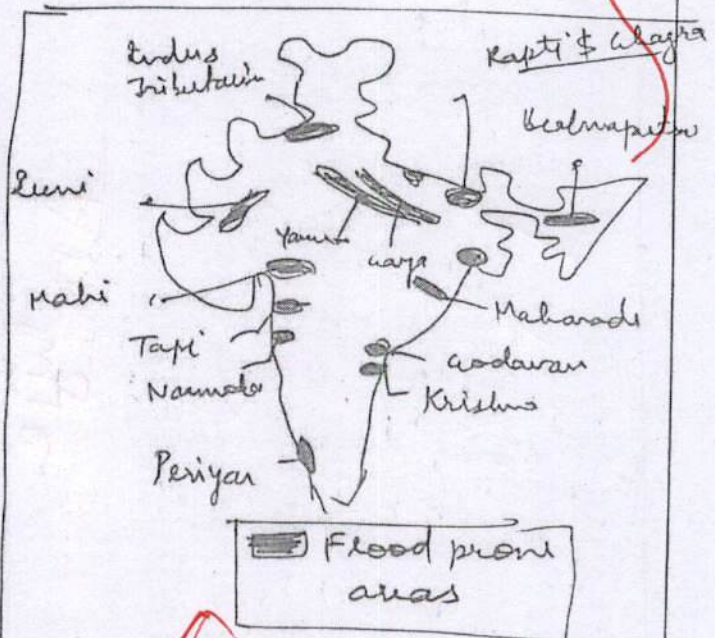 Indus
Tributaries
Rapti & Ghagra
Brahmaputra
Luni
Yamuna
Ganga
Mahi
Mahanadi
Tapi
Godavari
Narmada
Krishna
Periyar
Flood prone
areas